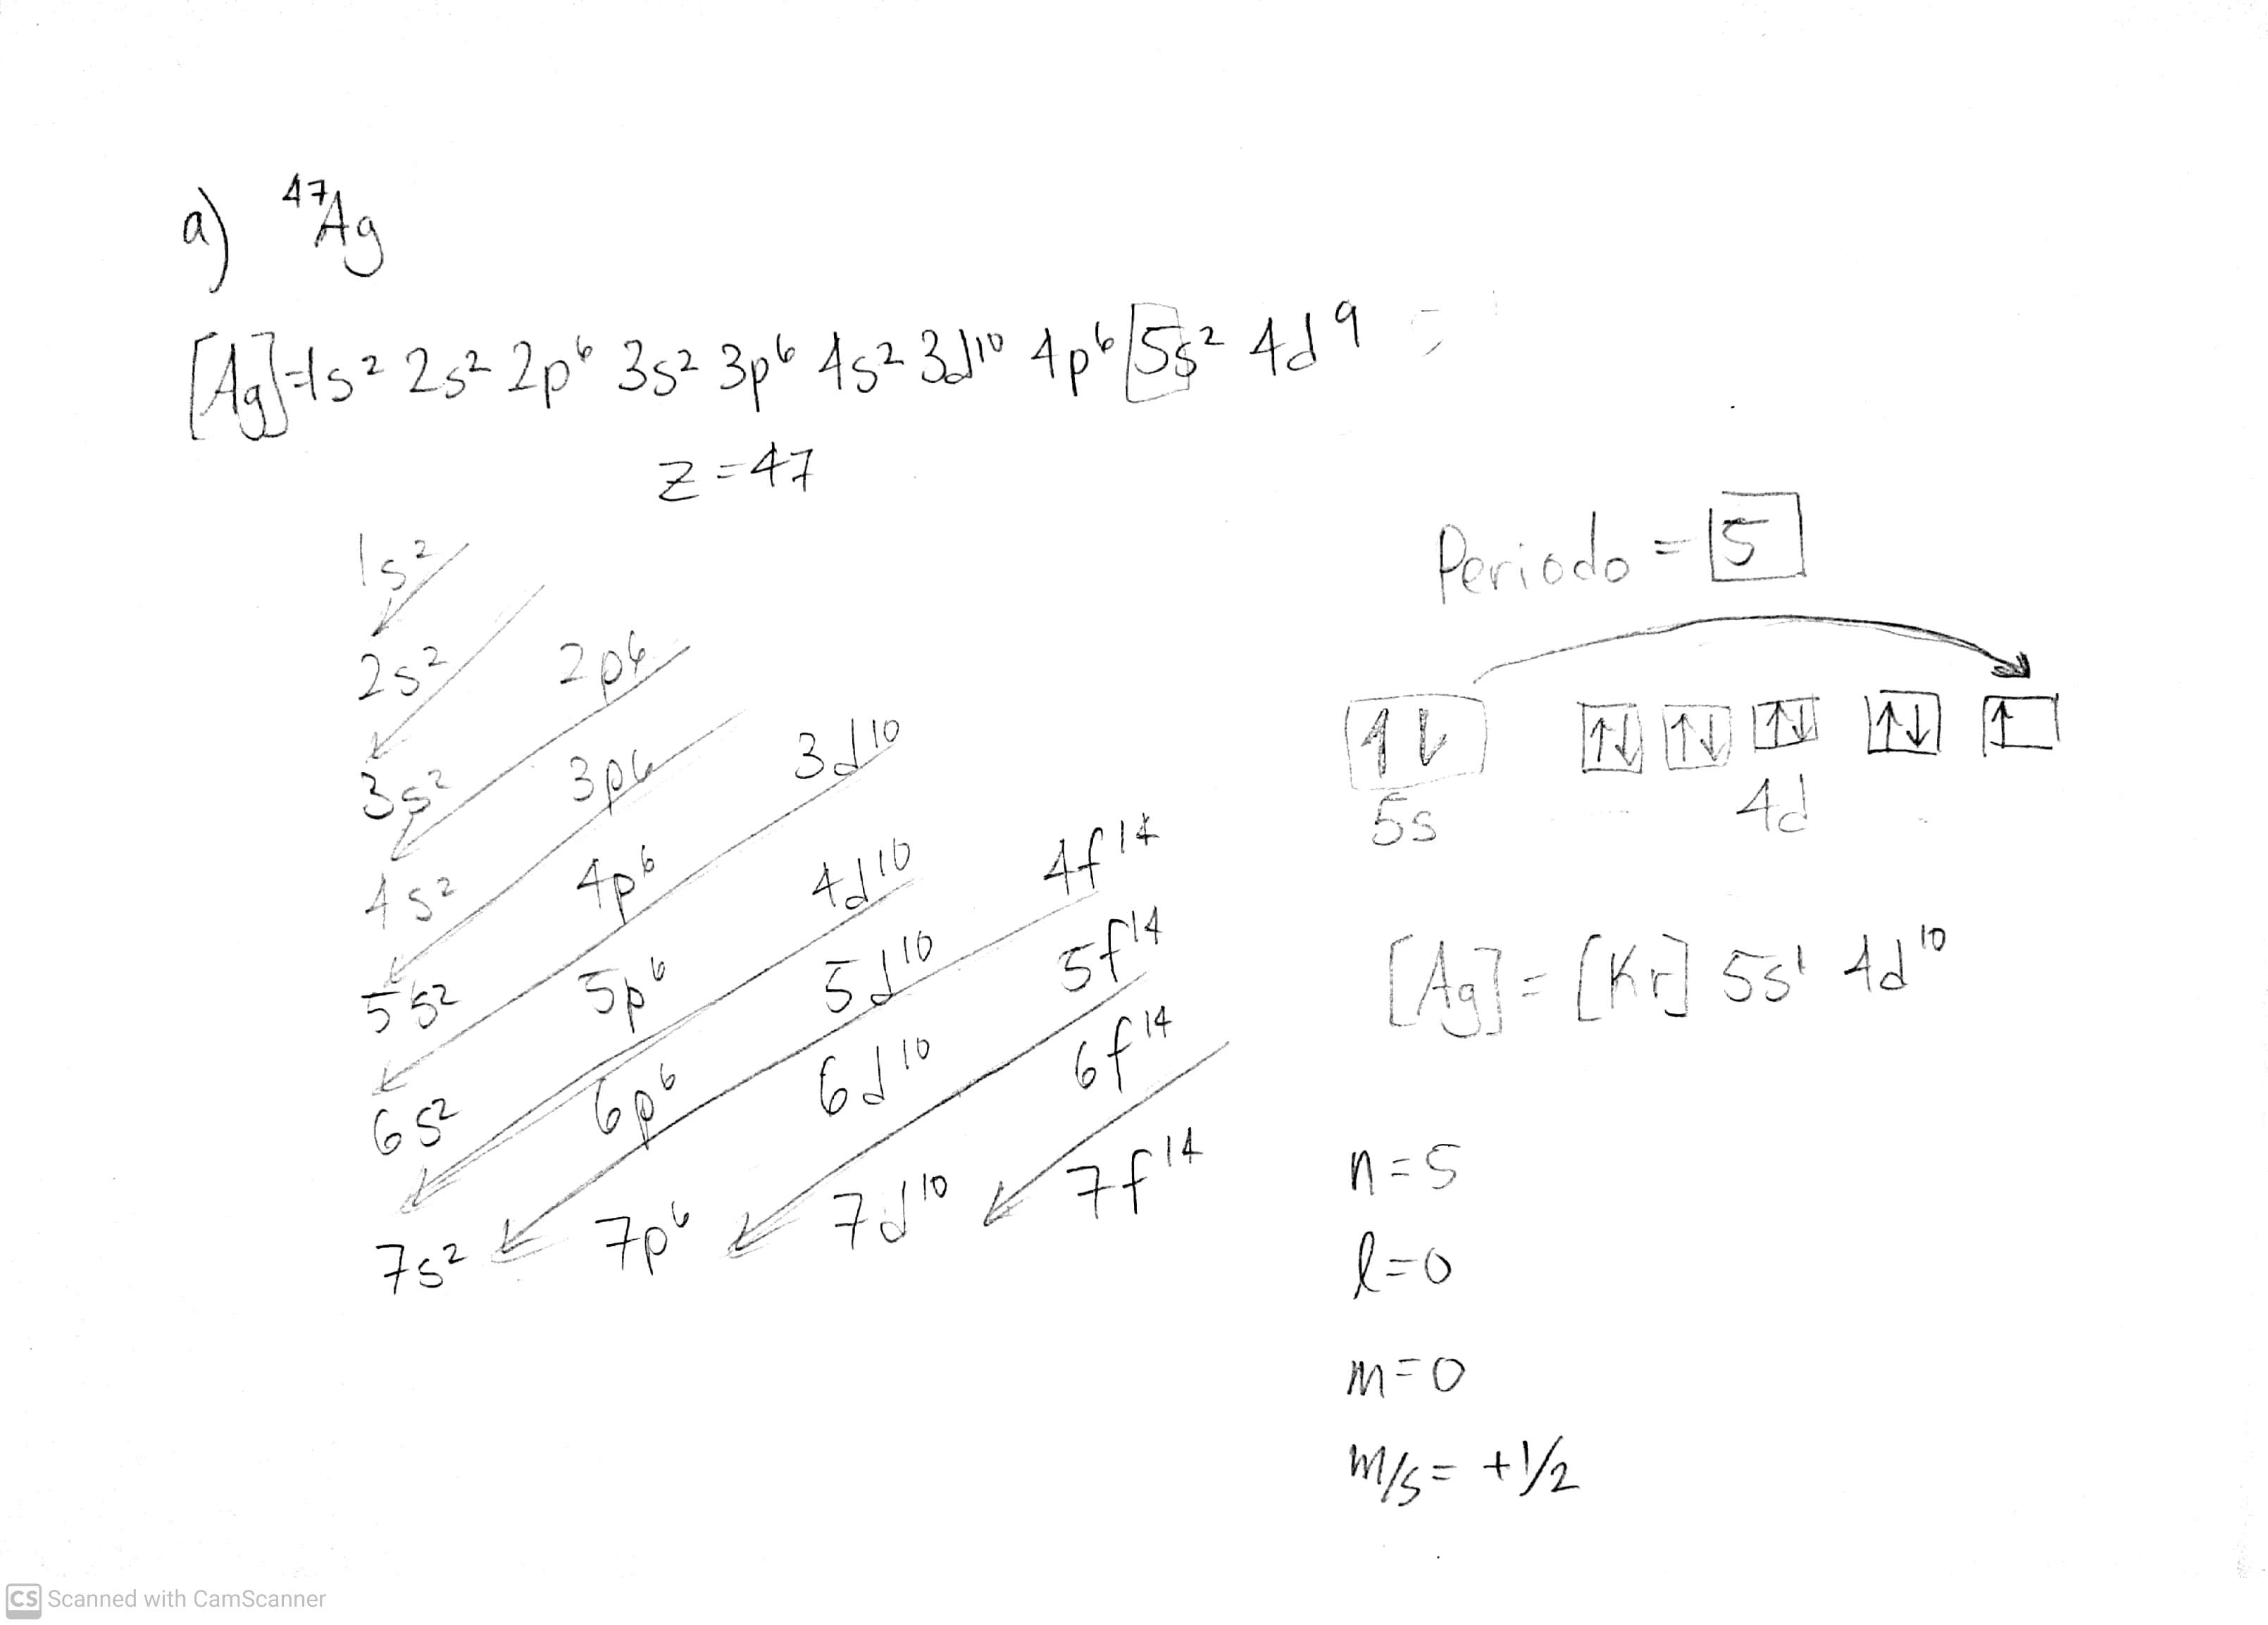 a) ⁴⁷Ag
[Ag]=1s² 2s² 2p⁶ 3s² 3p⁶ 4s² 3d¹⁰ 4p⁶ 5s² 4d⁹
z=47
1s²
2s² 2p⁶
3s² 3p⁶ 3d¹⁰
4s² 4p⁶ 4d¹⁰ 4f¹⁴
5s² 5p⁶ 5d¹⁰ 5f¹⁴
6s² 6p⁶ 6d¹⁰ 6f¹⁴
7s² 7p⁶ 7d¹⁰ 7f¹⁴
Periodo = 5
↑↓ ↑↓ ↑↓ ↑↓ ↑↓ ↑
5s 4d
[Ag]= [Kr] 5s¹ 4d¹⁰
n=5
l=0
m=0
m/s= +1/2
CS Scanned with CamScanner